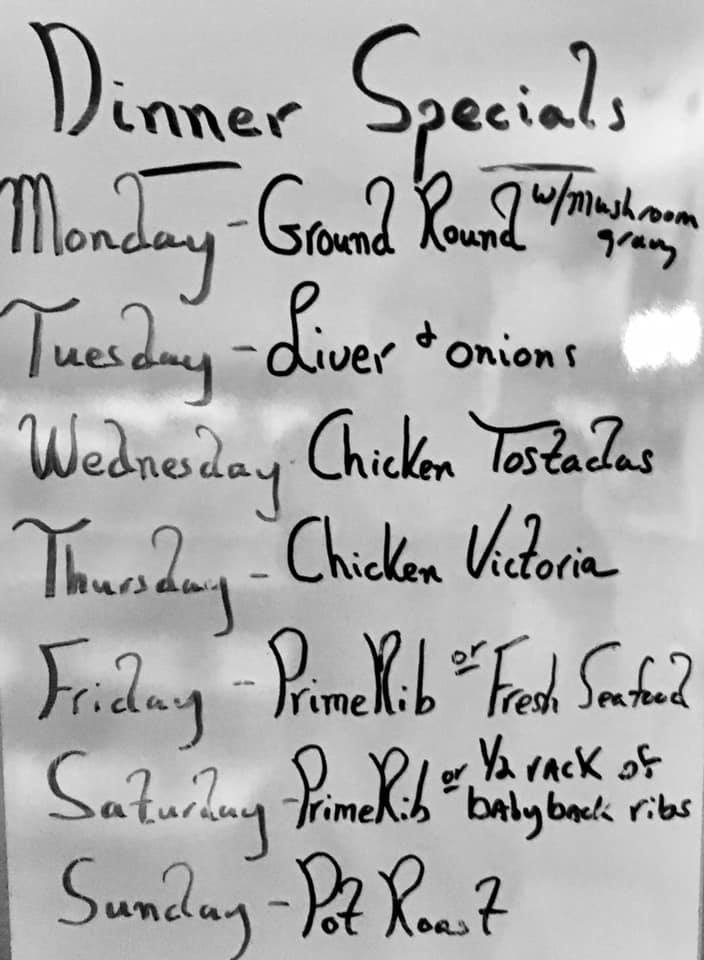 Dinner Specials
Monday - Ground Round w/mushroom
gravy
Tuesday - Liver & onions
Wednesday - Chicken Tostadas
Thursday - Chicken Victoria
Friday - Prime Rib or Fresh Seafood
Saturday - Prime Rib or 1/2 rack of
babyback ribs
Sunday - Pot Roast